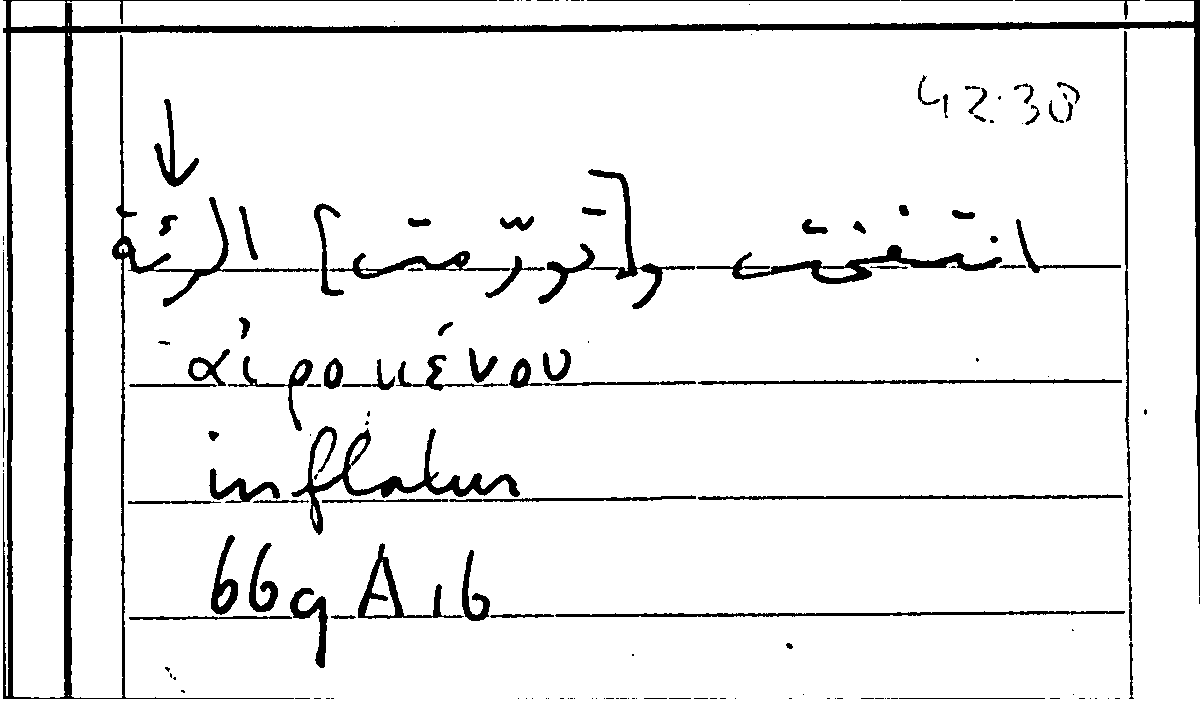 42.38
انتفخت و[تورّمت] الرئة
αἰρομένου
inflatur
669 A 16